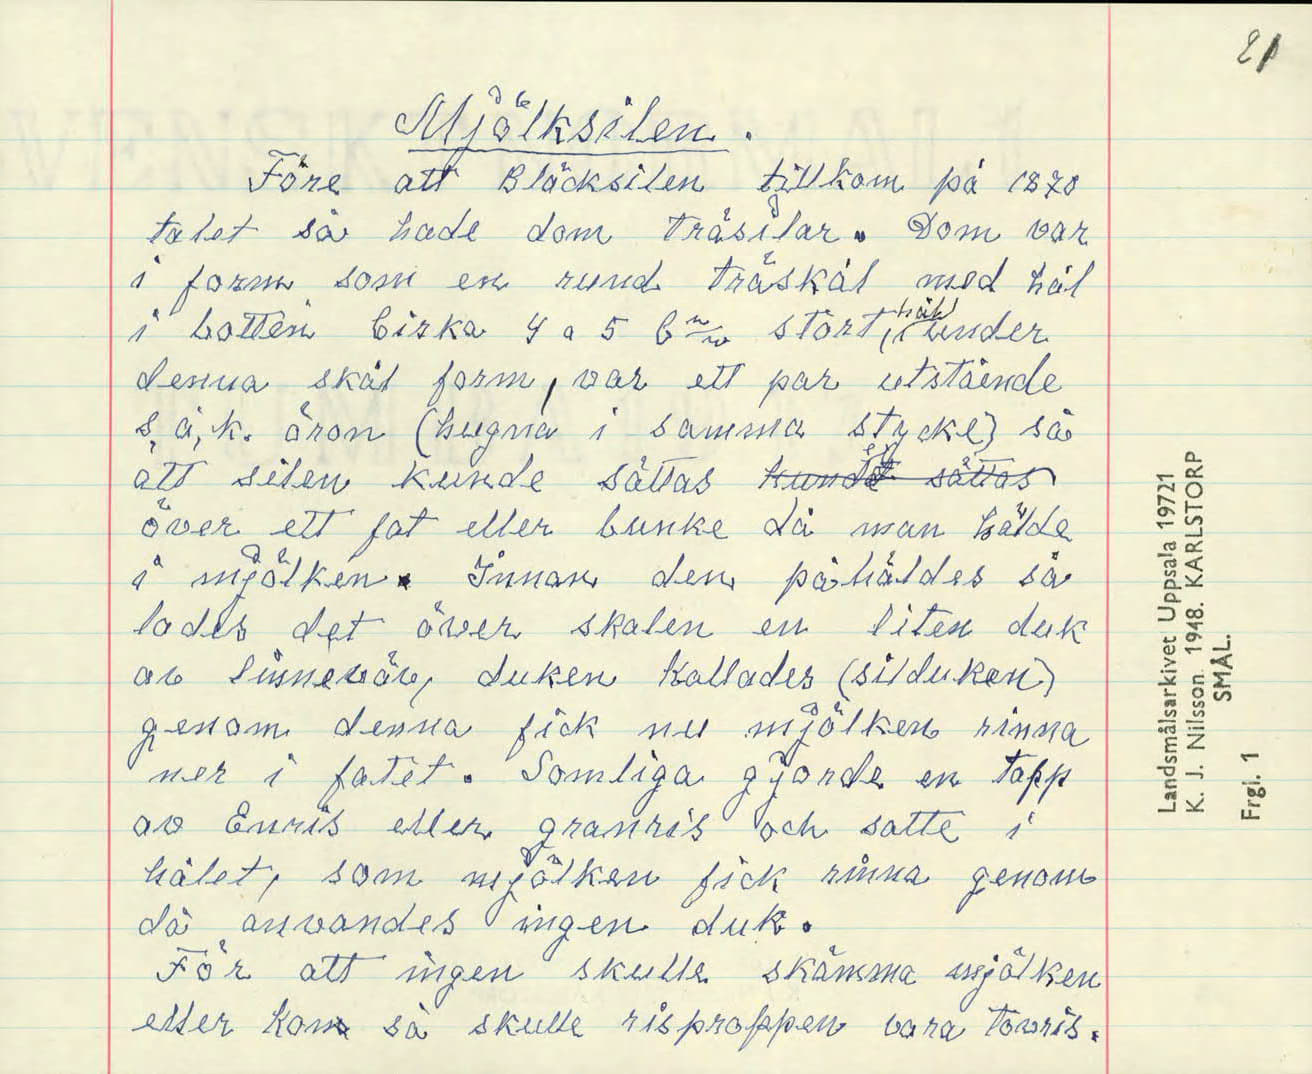 21
Mjölksilen.
Före att Bläcksilen tillkom på 1870
talet så hade dom träsilar. Dom var
i form som en rund träskål med hål
i botten Cirka 4 a 5 Cm stort, hål, under
denna skål form, var ett par utstående
s, å, k. öron (hugna i samma stycke) så
att silen kunde sättas kunde sättas
över ett fat eller bunke då man hälde
i mjölken. Innan den påhäldes så
lades det över skalen en liten duk
av linneväv, duken kallades (silduken)
genom denna fick nu mjölken rinna
ner i fatet. Somliga gjorde en tapp
av Enris eller granris och satte i
hålet, som mjölken fick rinna genom
då anvandes ingen duk.
För att ingen skulle skämma mjölken
eller kom så skulle risproppen vara tovris.
Landsmålsarkivet Uppsala 19721
K. J. Nilsson. 1948. KARLSTORP
SMÅL.
Frgl. 1